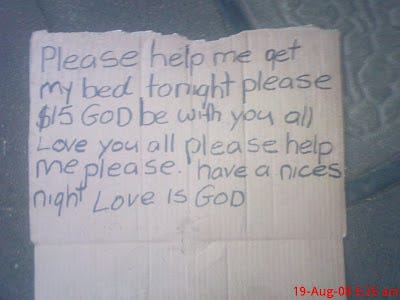 Please help me get
my bed tonight please
$15 GOD be with you all
Love you all please help
me please. have a nices
night Love is GOD